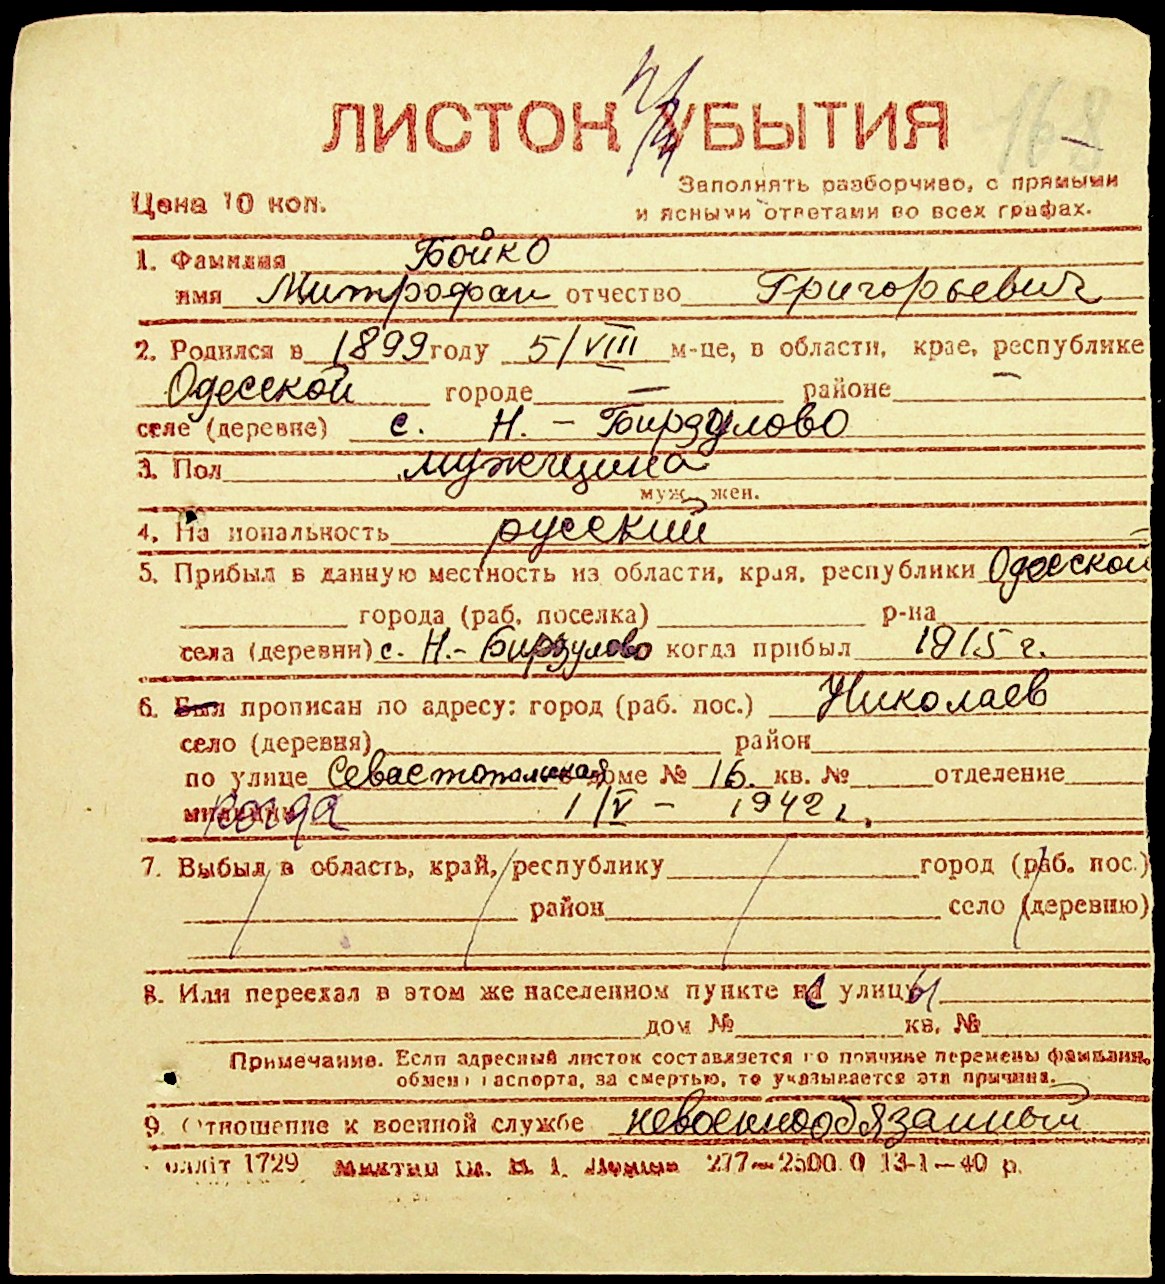 ЛИСТОК УБЫТИЯ
168
Цена 10 коп.
Заполнять разборчиво, с прямыми
и ясными ответами во всех графах.
1. Фамилия Бойко
имя Митрофан отчество Григорьевич
2. Родился в 1899 году 5/VIII м-це, в области, крае, республике
Одесской городе — районе —
селе (деревне) с. Н. - Бирзулово
3. Пол мужчина
муж., жен.
4. На иональность русский
5. Прибыл в данную местность из области, края, республики Одесской
города (раб. поселка) р-на
села (деревни) с. Н.- Бирзулово когда прибыл 1915 г.
6. Был прописан по адресу: город (раб. пос.) Николаев
село (деревня) район
по улице Севастопольская в доме № 16. кв. № отделение
милиции когда 1/V - 1942 г.
7. Выбыл в область, край, республику город (раб. пос.)
район село (деревню)
8. Или переехал в этом же населенном пункте на улицу
дом № кв. №
Примечание. Если адресный листок составляется по причине перемены фамилии,
обмена паспорта, за смертью, то указывается эта причина.
9. Отношение к военной службе невоеннообязанный
оллiт 1729 277—2500.0 13-1—40 р.